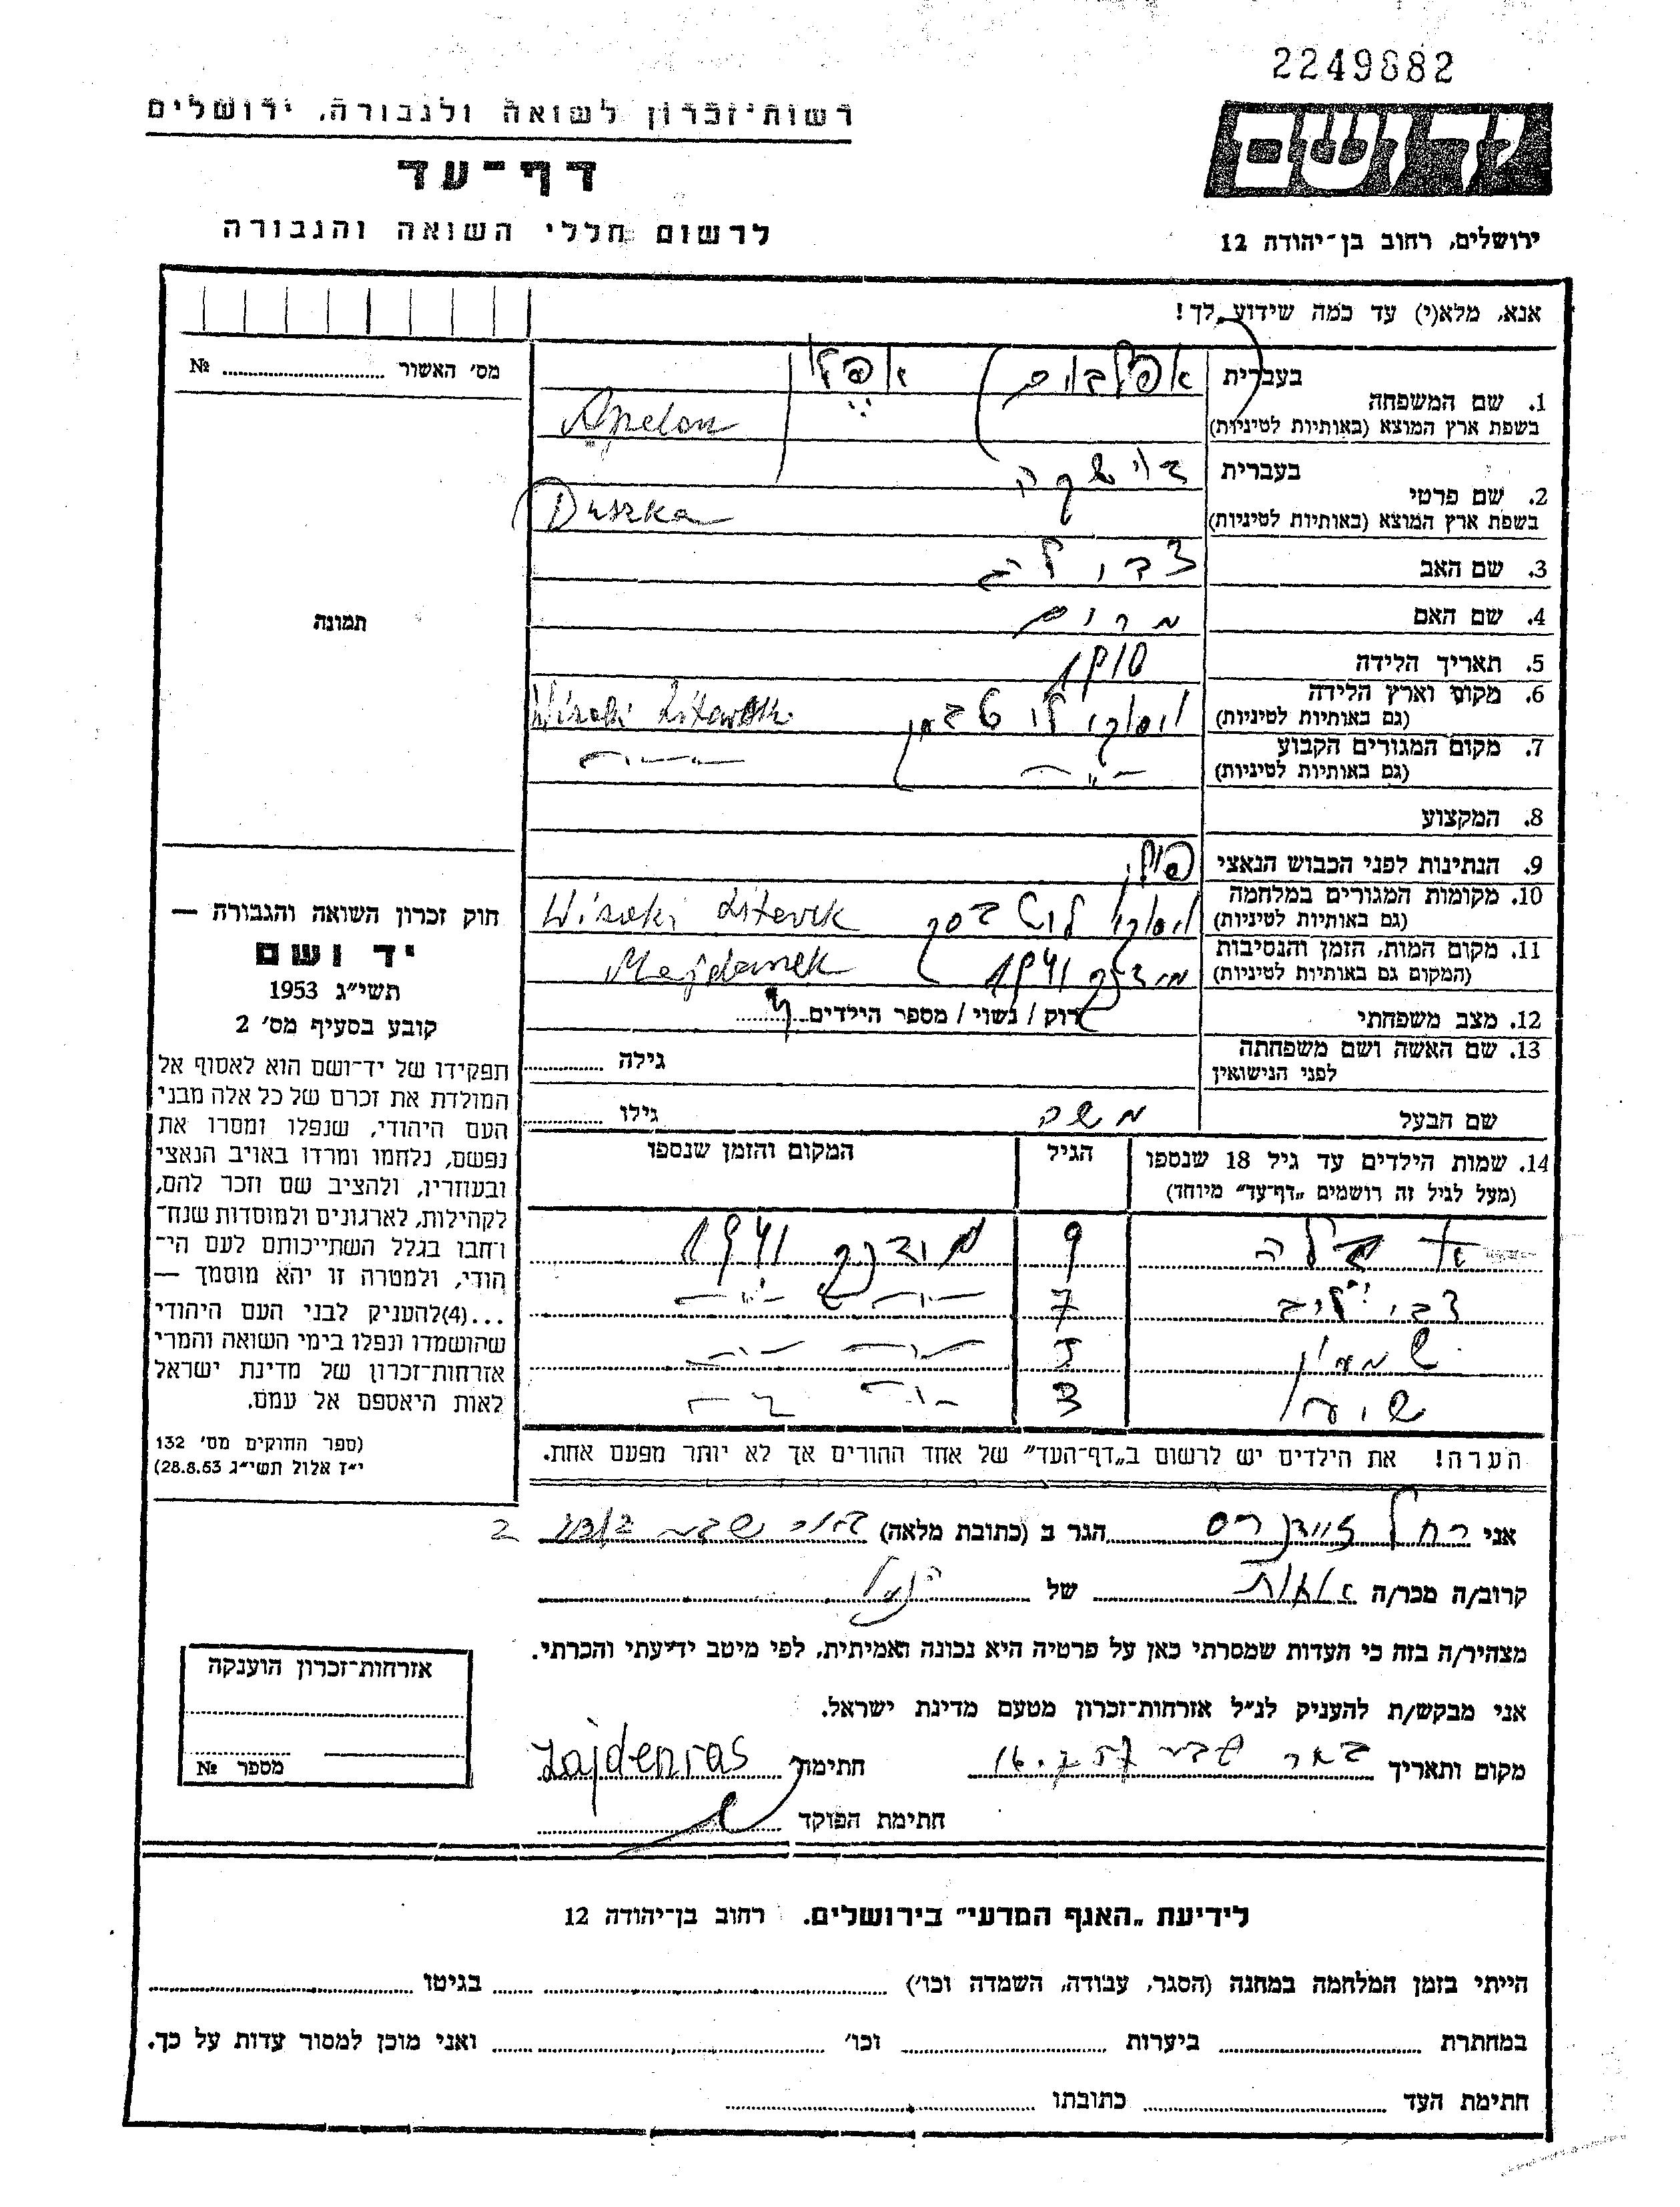 2249882
רשות־זכרון לשואה ולגבורה, ירושלים
יד ושם
דף־עד
לרשום חללי השואה והגבורה
ירושלים, רחוב בן־יהודה 12
אנא, מלא(י) עד כמה שידוע לך!
מס׳ האשור № 
1. שם המשפחה
בעברית אפלבוים
בשפת ארץ המוצא (באותיות לטיניות) Apelon
2. שם פרטי
בעברית דושקה
בשפת ארץ המוצא (באותיות לטיניות) Duszka
3. שם האב
4. שם האם מרים
תמונה
5. תאריך הלידה 1910
6. מקום וארץ הלידה
(גם באותיות לטיניות) ויסוקי ליטבסק Wisoki Litewsk
7. מקום המגורים הקבוע
(גם באותיות לטיניות) —„— —„—
8. המקצוע
9. הנתינות לפני הכבוש הנאצי פולין
10. מקומות המגורים במלחמה
(גם באותיות לטיניות) ויסוקי ליטבסק Wisoki Litevsk
11. מקום המות, הזמן והנסיבות
(המקום גם באותיות לטיניות) מידנק 1941 Majdanek
12. מצב משפחתי רוק / נשוי / מספר הילדים 4
13. שם האשה ושם משפחתה
לפני הנישואין
גילה
שם הבעל משה גילו
14. שמות הילדים עד גיל 18 שנספו הגיל המקום והזמן שנספו
(מעל לגיל זה רושמים „דף־עד״ מיוחד)
9 מידנק 1941
7 —„— —„—
שמעון 5 —„— —„—
3 —„— —„—
הערה! את הילדים יש לרשום ב„דף־העד״ של אחד ההורים אך לא יותר מפעם אחת.
חוק זכרון השואה והגבורה —
יד ושם
תשי״ג 1953
קובע בסעיף מס׳ 2
תפקידו של יד־ושם הוא לאסוף אל
המולדת את זכרם של כל אלה מבני
העם היהודי, שנפלו ומסרו את
נפשם, נלחמו ומרדו באויב הנאצי
ובעוזריו, ולהציב שם וזכר להם,
לקהילות, לארגונים ולמוסדות שנח־
רבו בגלל השתייכותם לעם הי־
הודי, ולמטרה זו יהא מוסמך —
...(4)להעניק לבני העם היהודי
שהושמדו ונפלו בימי השואה והמרי
אזרחות־זכרון של מדינת ישראל
לאות היאספם אל עמם.
(ספר החוקים מס׳ 132
י״ז אלול תשי״ג 28.8.53)
אני רחל זיידנרס הגר ב (כתובת מלאה) באר שבע
קרוב/ה מכר/ה של
מצהיר/ה בזה כי העדות שמסרתי כאן על פרטיה היא נכונה ואמיתית, לפי מיטב ידיעתי והכרתי.
אני מבקש/ת להעניק לנ״ל אזרחות־זכרון מטעם מדינת ישראל.
מקום ותאריך באר שבע 16.7.57 חתימה Zajdenras
חתימת הפוקד
אזרחות־זכרון הוענקה
מספר №
לידיעת „האגף המדעי״ בירושלים. רחוב בן־יהודה 12
הייתי בזמן המלחמה במחנה (הסגר, עבודה, השמדה וכו׳) בגיטו
במחתרת ביערות וכו׳ ואני מוכן למסור עדות על כך.
חתימת העד כתובתו